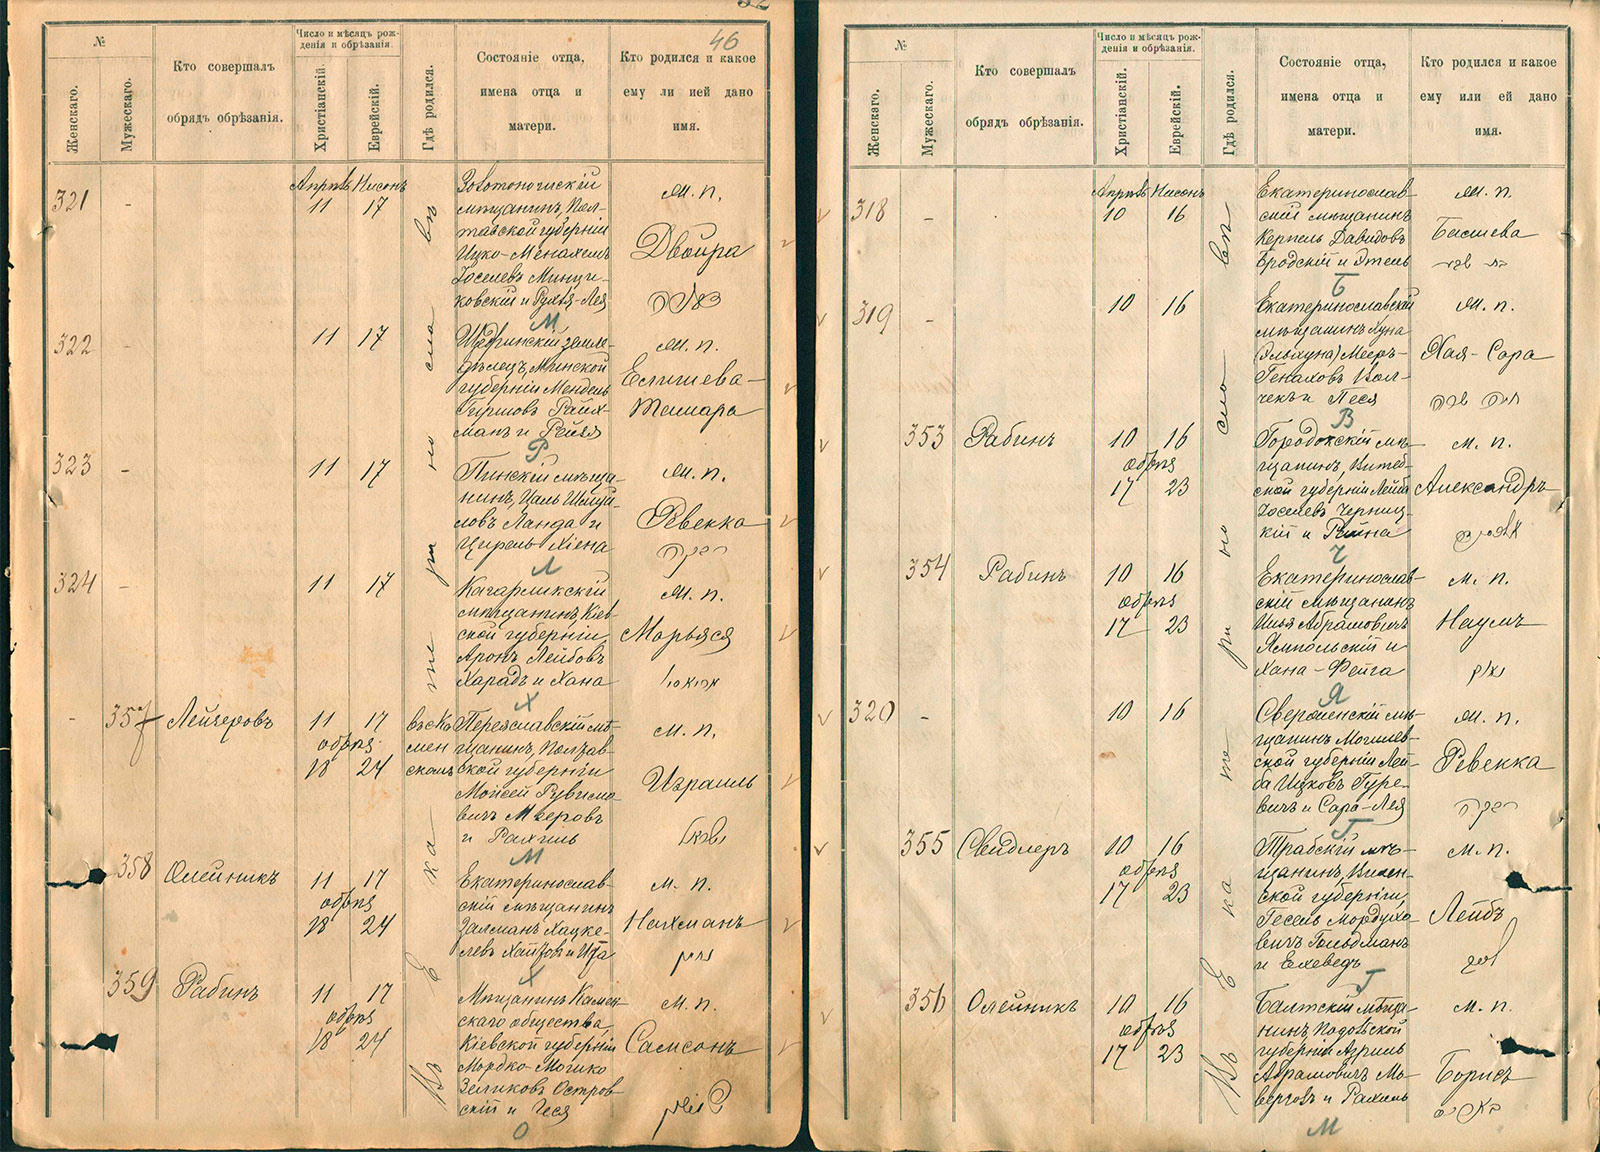 46
№
Женскаго.
Мужескаго.
Кто совершалъ
обрядъ обрѣзанія.
Число и мѣсяцъ рож-
денія и обрѣзанія.
Христіанскій.
Еврейскій.
Гдѣ родился.
Состояніе отца,
имена отца и
матери.
Кто родился и какое
ему ли ией дано
имя.
Въ Екатеринославѣ
321
-
Апрѣль Нисонъ
11 17
Золотоношскій
мѣщанинъ, Пол-
тавской губерніи
Ицко-Менахемъ
Іоселевъ
ковскій и Рухля-Лея
М
м. п.
Двойра
322
-
11 17
землe-
дѣлецъ, Минской
губерніи Мендель
Гиршовъ Райх-
манъ и Рейзя
Р
м. п.
Елишева-
Тамара
323
-
11 17
Пинскій мѣща-
нинъ,
ловъ Ланда и
Цирель Хіена
Л
м. п.
Ревекка
רבקה
324
-
11 17
Кагарликскій
мѣщанинъ, Кіев-
ской губерніи,
Аронъ Лейбовъ
Харадъ и Хана
Х
м. п.
Марьяся
-
357
Лейзеровъ
11 17
обрѣз
18 24
въ Ка
мен
скомъ
Переяславскій мѣ-
щанинъ, Полтав-
ской губерніи
Мойсей Рувимо-
вичъ Мееровъ
и Рахиль
М
м. п.
Израиль
ישראל
358
Олейникъ
11 17
обрѣз
18 24
Екатеринослав-
скій мѣщанинъ
Залманъ Хацке-
левъ
Х
м. п.
Нахманъ
נחמן
359
Рабинъ
11 17
обрѣз
18 24
Мѣщанинъ
скаго общества,
Кіевской губерніи
Мордко-
Зеликовъ Остров-
скій и Чеся
О
м. п.
Самсонъ
שמשון
№
Женскаго.
Мужескаго.
Кто совершалъ
обрядъ обрѣзанія.
Число и мѣсяцъ рож-
денія и обрѣзанія.
Христіанскій.
Еврейскій.
Гдѣ родился.
Состояніе отца,
имена отца и
матери.
Кто родился и какое
ему или ей дано
имя.
Въ Екатеринославѣ
318
-
Апрѣль Нисонъ
10 16
Екатеринослав-
скій мѣщанинъ
Давидовъ
Бродскій и Этель
Б
м. п.
Басшева
בת שבע
319
-
10 16
Екатеринославскій
мѣщанинъ Хуна
(Эльхуна) Мееръ-
Генаховъ Вол-
чекъ и Песя
В
м. п.
Хая-Сора
חיה שרה
353
Рабинъ
10 16
обрѣз
17 23
Городокскій мѣ-
щанинъ, Витеб-
ской губерніи Лейба
Іоселевъ Черниц-
кій и Рейна
Ч
м. п.
Александръ
354
Рабинъ
10 16
обрѣз
17 23
Екатеринослав-
скій мѣщанинъ
Илья Абрамовичъ
Ямпольскій и
Хана-Фейга
Я
м. п.
Наумъ
נחום
320
-
10 16
мѣ-
щанинъ Могилев-
ской губерніи Лей-
ба Ицковъ Гуре-
вичъ и Сора-Лея
Г
м. п.
Ревекка
רבקה
355
Свидлеръ
10 16
обрѣз
17 23
Трабскій мѣ-
щанинъ, Вилен-
ской губерніи,
Гесель Мордухо-
вичъ Гольдманъ
и Ехеведъ
Г
м. п.
Лейбъ
356
Олейникъ
10 16
обрѣз
17 23
Балтскій мѣща-
нинъ, Подольской
губерніи Азриль
Абрамовичъ Мо-
верговъ и Рахиль
М
м. п.
Борисъ